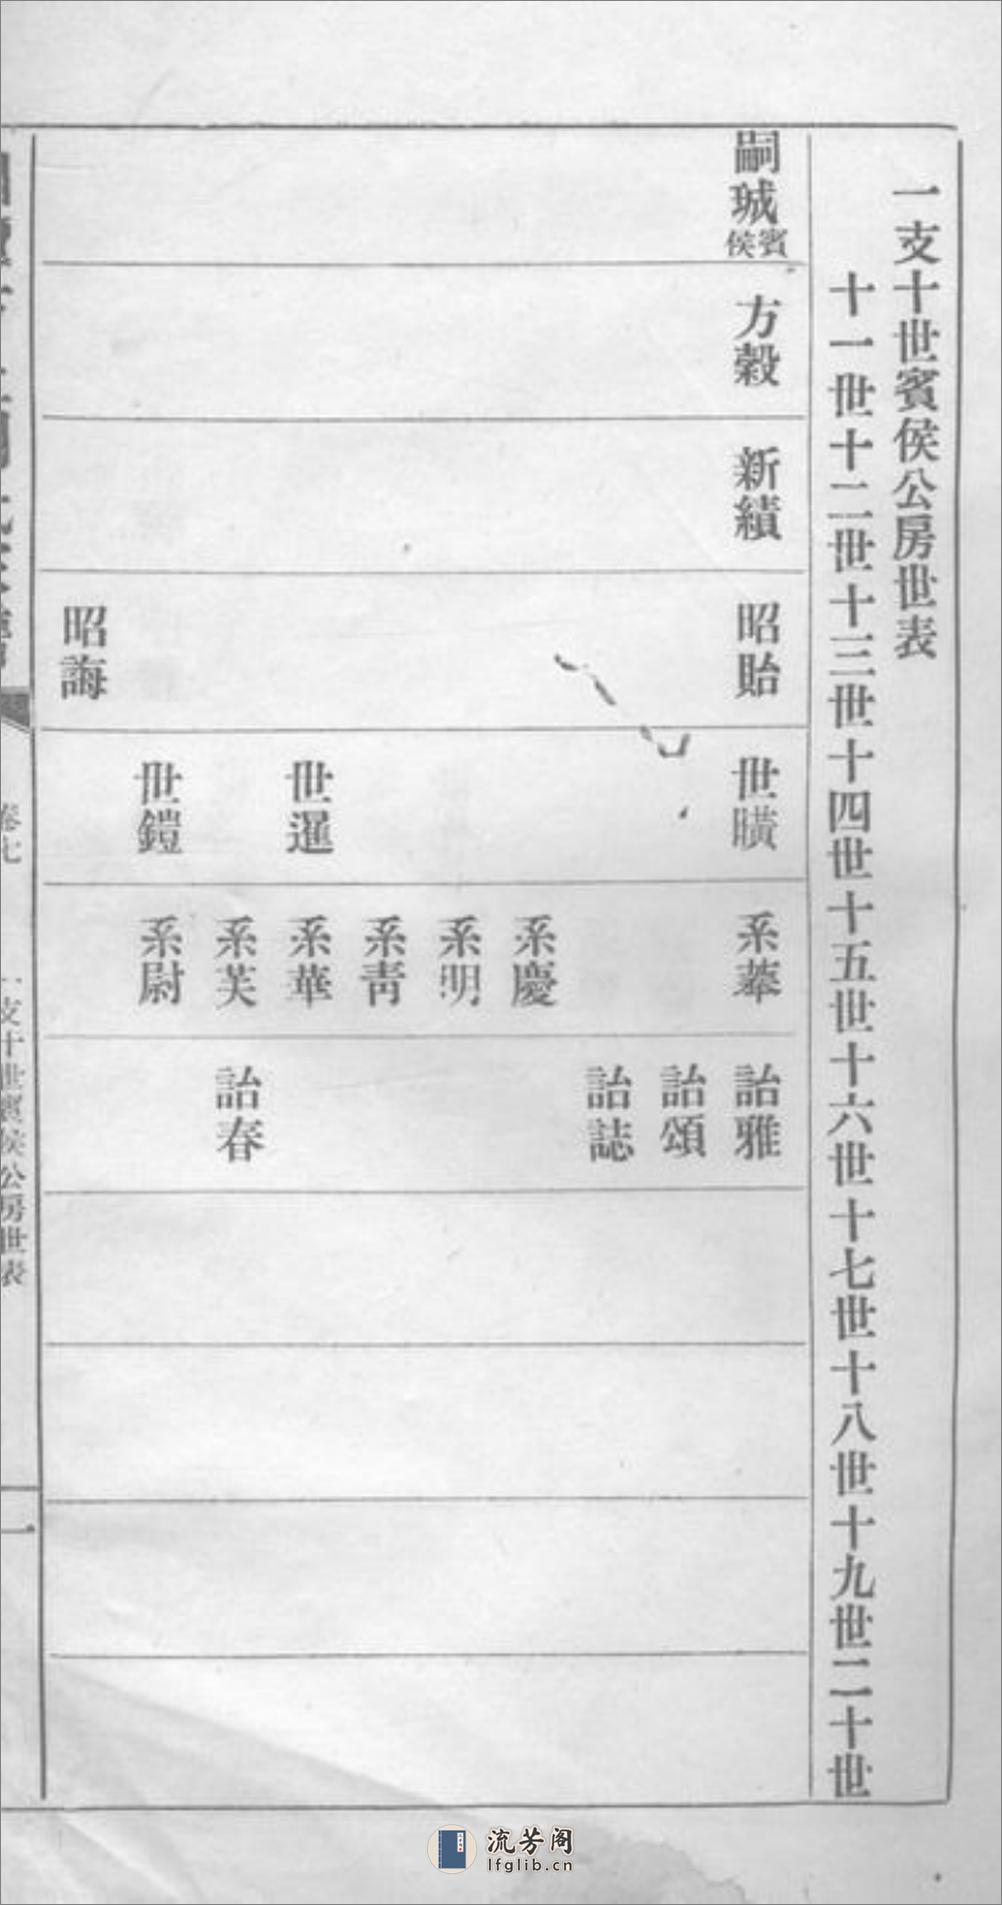 一支十世賓侯公房世表
十一世十二世十三世十四世十五世十六世十七世十八世十九世二十世
嗣珹賓侯
方穀
新績
昭貽
昭誨
世暪
世暹
世鎧
系蓁
系慶
系明
系靑
系華
系芙
系尉
詒雅
詒頌
詒誌
詒春
卷七
一支十世賓侯公房世表
一
流芳阁
lfglib.cn